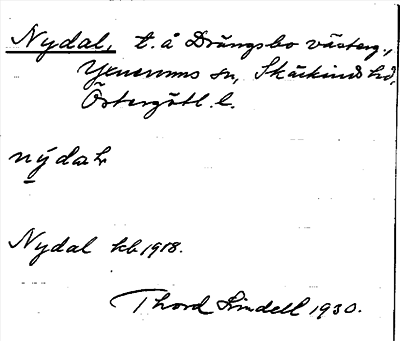 Nydal, t. å Drängsbo västerg.,
Yxnerums sn, Skärkinds hd,
Östergötl. l.
nýdaɫ
Nydal kb 1918.
Thord Lindell 1930.